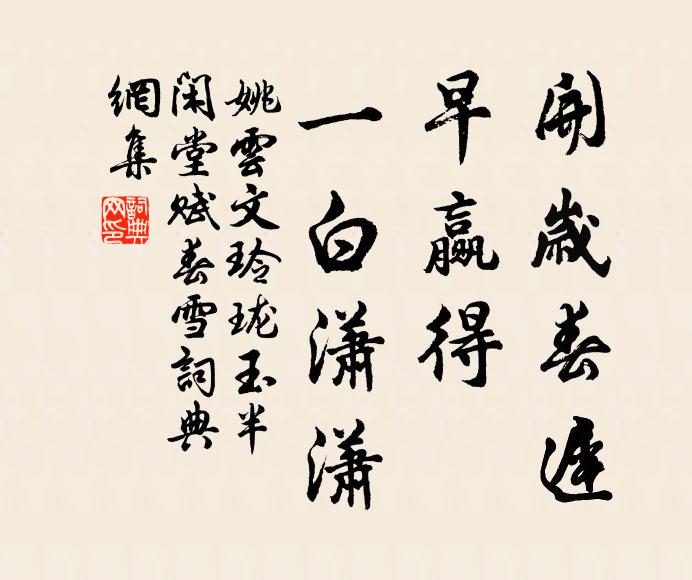 開歲春遲
早贏得
一白瀟瀟
姚雲文玲瓏玉半
閑堂賦春雪詞典
網集
詞典網印